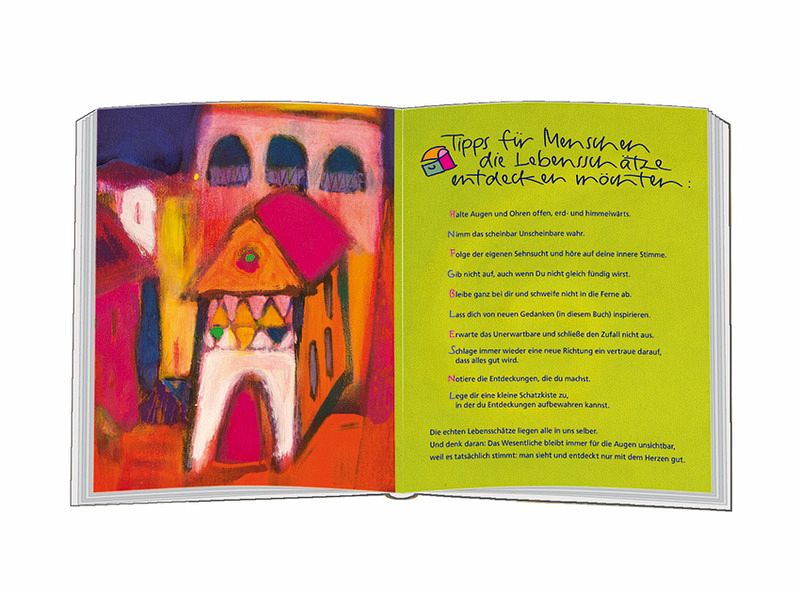 Tipps für Menschen
die Lebensschätze
entdecken möchten:
Halte Augen und Ohren offen, erd- und himmelwärts.
Nimm das scheinbar Unscheinbare wahr.
Folge der eigenen Sehnsucht und höre auf deine innere Stimme.
Gib nicht auf, auch wenn Du nicht gleich fündig wirst.
Bleibe ganz bei dir und schweife nicht in die Ferne ab.
Lass dich von neuen Gedanken (in diesem Buch) inspirieren.
Erwarte das Unerwartbare und schließe den Zufall nicht aus.
Schlage immer wieder eine neue Richtung ein vertraue darauf,
dass alles gut wird.
Notiere die Entdeckungen, die du machst.
Lege dir eine kleine Schatzkiste zu,
in der du Entdeckungen aufbewahren kannst.
Die echten Lebensschätze liegen alle in uns selber.
Und denk daran: Das Wesentliche bleibt immer für die Augen unsichtbar,
weil es tatsächlich stimmt: man sieht und entdeckt nur mit dem Herzen gut.